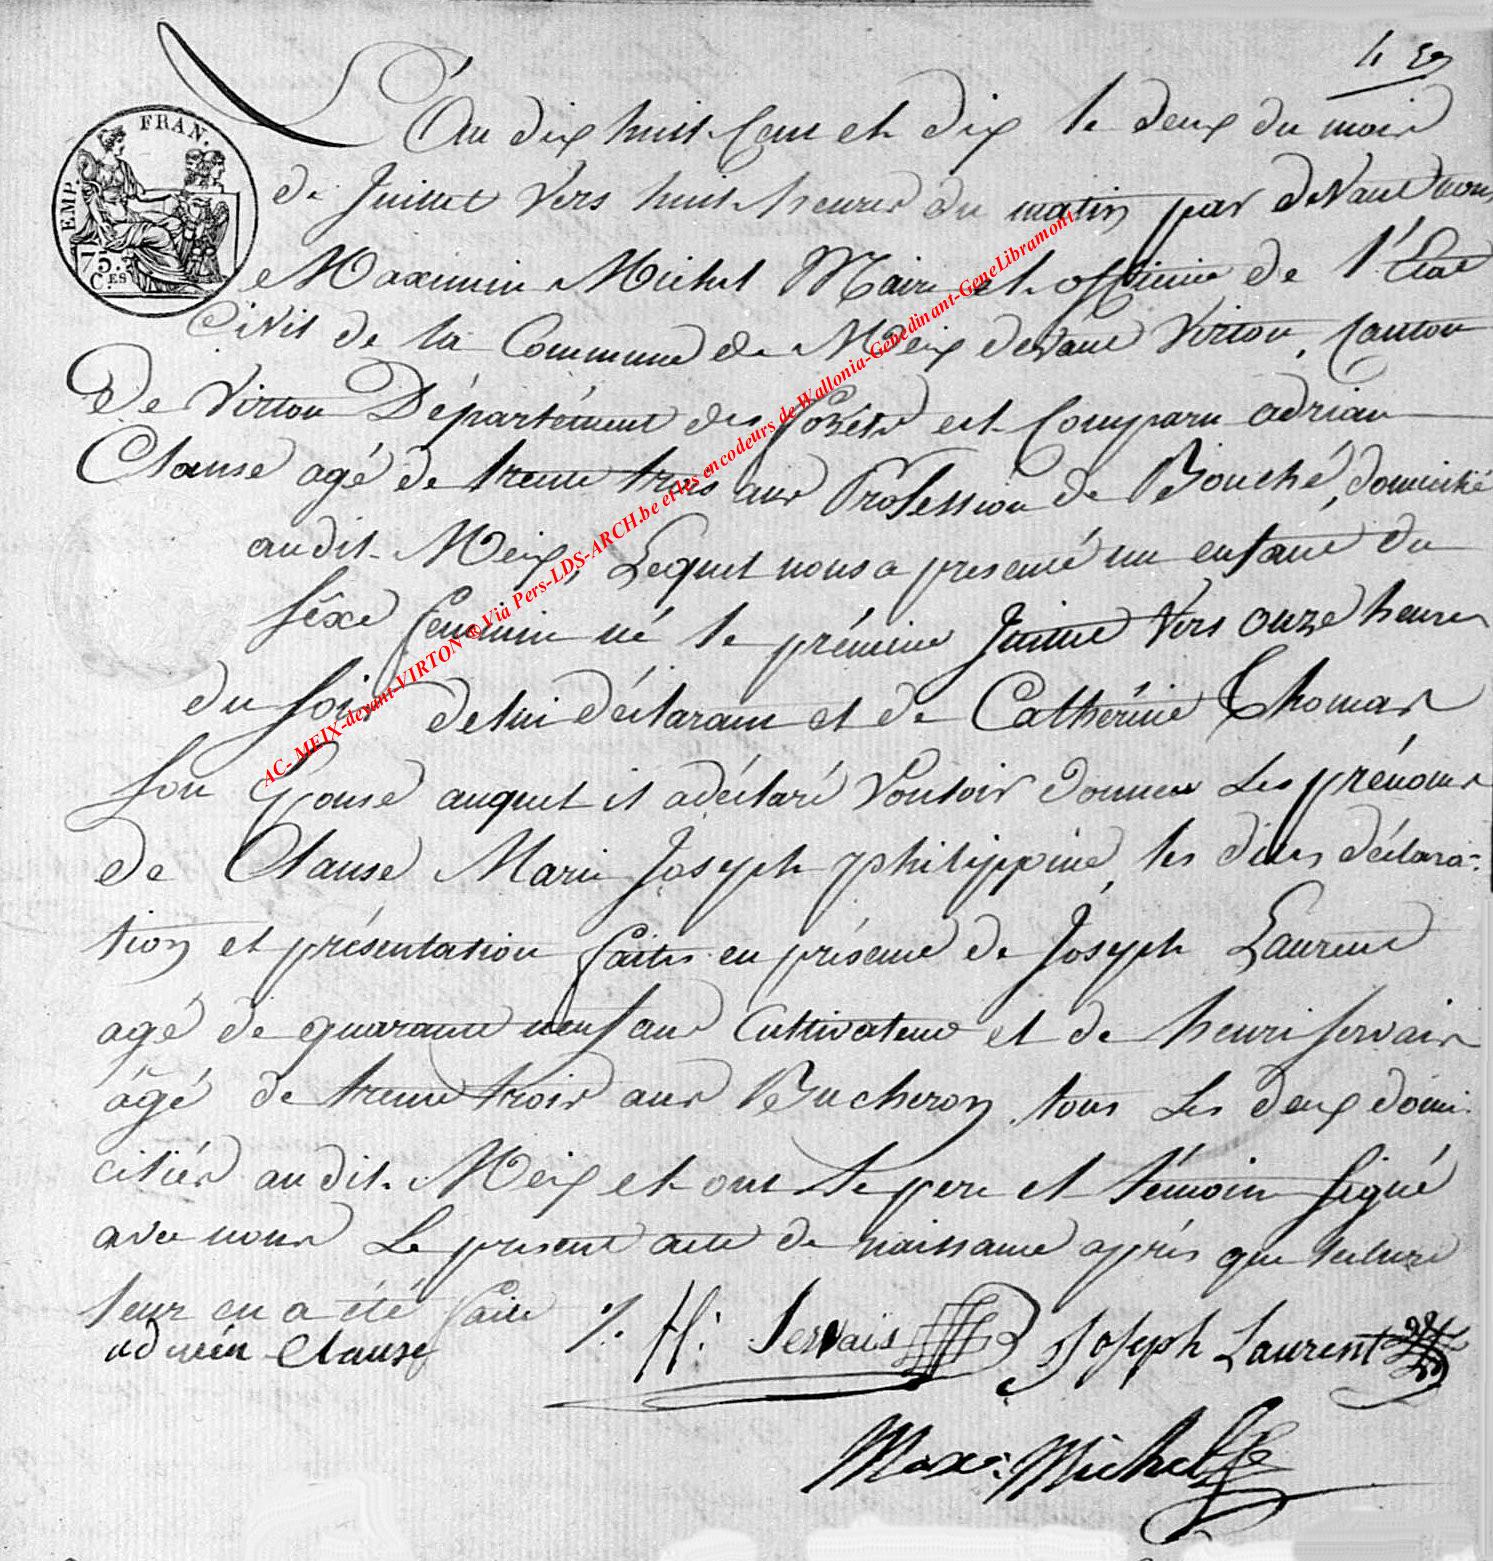 4 E
FRAN.
EMP.
75.
CES
L'An dix huit Cent et dix le deux du mois
de Juillet vers huit heures du matin par devant nous
Maximin Michel Maire et officier de l'État
Civil de la Commune de Meix devant Virton, Canton
De Virton Département des forêts est Comparu adrian
Clause agé de trente trois ans Profession de Bouché, domicilié
audit Meix, Lequel nous a presenté un enfant du
sêxe feminin né le prémier Juillet vers onze heures
du soir de lui déclarant et de Cathérine Thomas
son Epouse auquel il a déclaré vouloir donner les prénoms
de Clause Marie Joseph philippine, les dites déclara-
tion et présentation faites en présence de Joseph Laurent
agé de quarante neuf ans Cultivateur et de henri servais
âgé de trente trois ans Bucheron tous les deux domi-
ciliés audit Meix et ont le pere et témoin signé
avec nous Le present acte de naissance après que lecture
leur en a été faite %. H: Servais Joseph Laurent
adrien Clause
Max: Michel
AC- MEIX-devant-VIRTON ® Via Pers-LDS-ARCH.be et les encodeurs de Wallonia-Genedinant-GeneLibramont